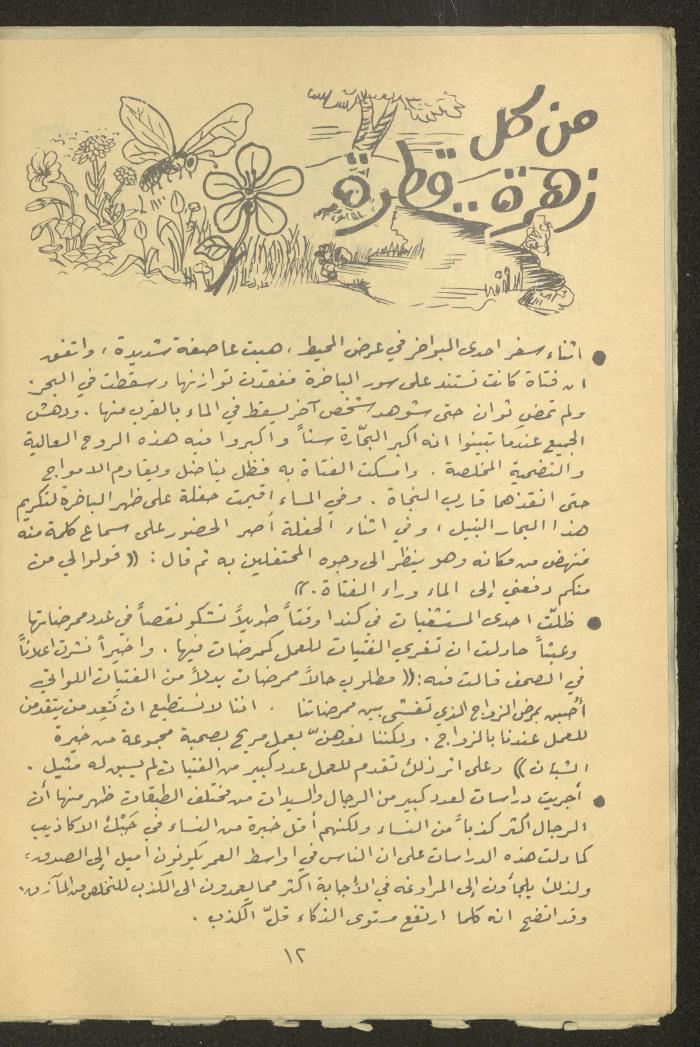 من كل
زهرة .. قطرة
● اثناء سفر احدى البواخر في عرض المحيط ، هبت عاصفة شديدة ، واتفق
ان فتاة كانت تستند على سور الباخرة ففقدت توازنها وسقطت في البحر.
ولم تمضِ ثوان حتى شوهد شخص آخر يسقط في الماء بالقرب منها . ودهش
الجميع عندما تبينوا انه اكبر البحّارة سناً واكبروا فيه هذه الروح العالية
والتضحية المخلصة . وامسكت الفتاة به فظل يناضل ويقاوم الامواج
حتى انقذهما قارب النجاة . وفي المساء اقيمت حفلة على ظهر الباخرة لتكريم
هذا البحار النبيل ، وفي اثناء الحفلة أصر الحضور على سماع كلمة منه
فنهض من مكانه وهو ينظر الى وجوه المحتفلين به ثم قال : (( قولوا لي من
منكم دفعني إلى الماء وراء الفتاة . ))
● ظلّت احدى المستشفيات في كندا وقتاً طويلاً تشكو نقصاً في عدد ممرضاتها
وعبثاً حاولت ان تغري الفتيات للعمل كممرضات فيها . واخيراً نشرت اعلاناً
في الصحف قالت فيه : (( مطلوب حالاً ممرضات بدلاً من الفتيات اللواتي
أُصبن بمرض الزواج الذي تفشى بين ممرضاتنا . اننا لا نستطيع ان نَعِد من يتقدمن
للعمل عندنا بالزواج . ولكننا نعدهنّ بعمل مريح بصحبة مجموعة من خيرة
الشبان )) وعلى اثر ذلك تقدم للعمل عدد كبير من الفتيات لم يسبق له مثيل .
● أجريت دراسات لعدد كبير من الرجال والسيدات من مختلف الطبقات ظهر منها أن
الرجال اكثر كذباً من النساء ولكنهم أقل خبرة من النساء في حَبْك الاكاذيب
كما دلت هذه الدراسات على ان الناس في اواسط العمر يكونون اميل إلى الصدق ،
ولذلك يلجأون إلى المراوغه في الأجابة اكثر مما يعمدون الى الكذب للتخلص من المآزق.
وقد اتضح انه كلما ارتفع مستوى الذكاء قلّ الكذب .
١٢